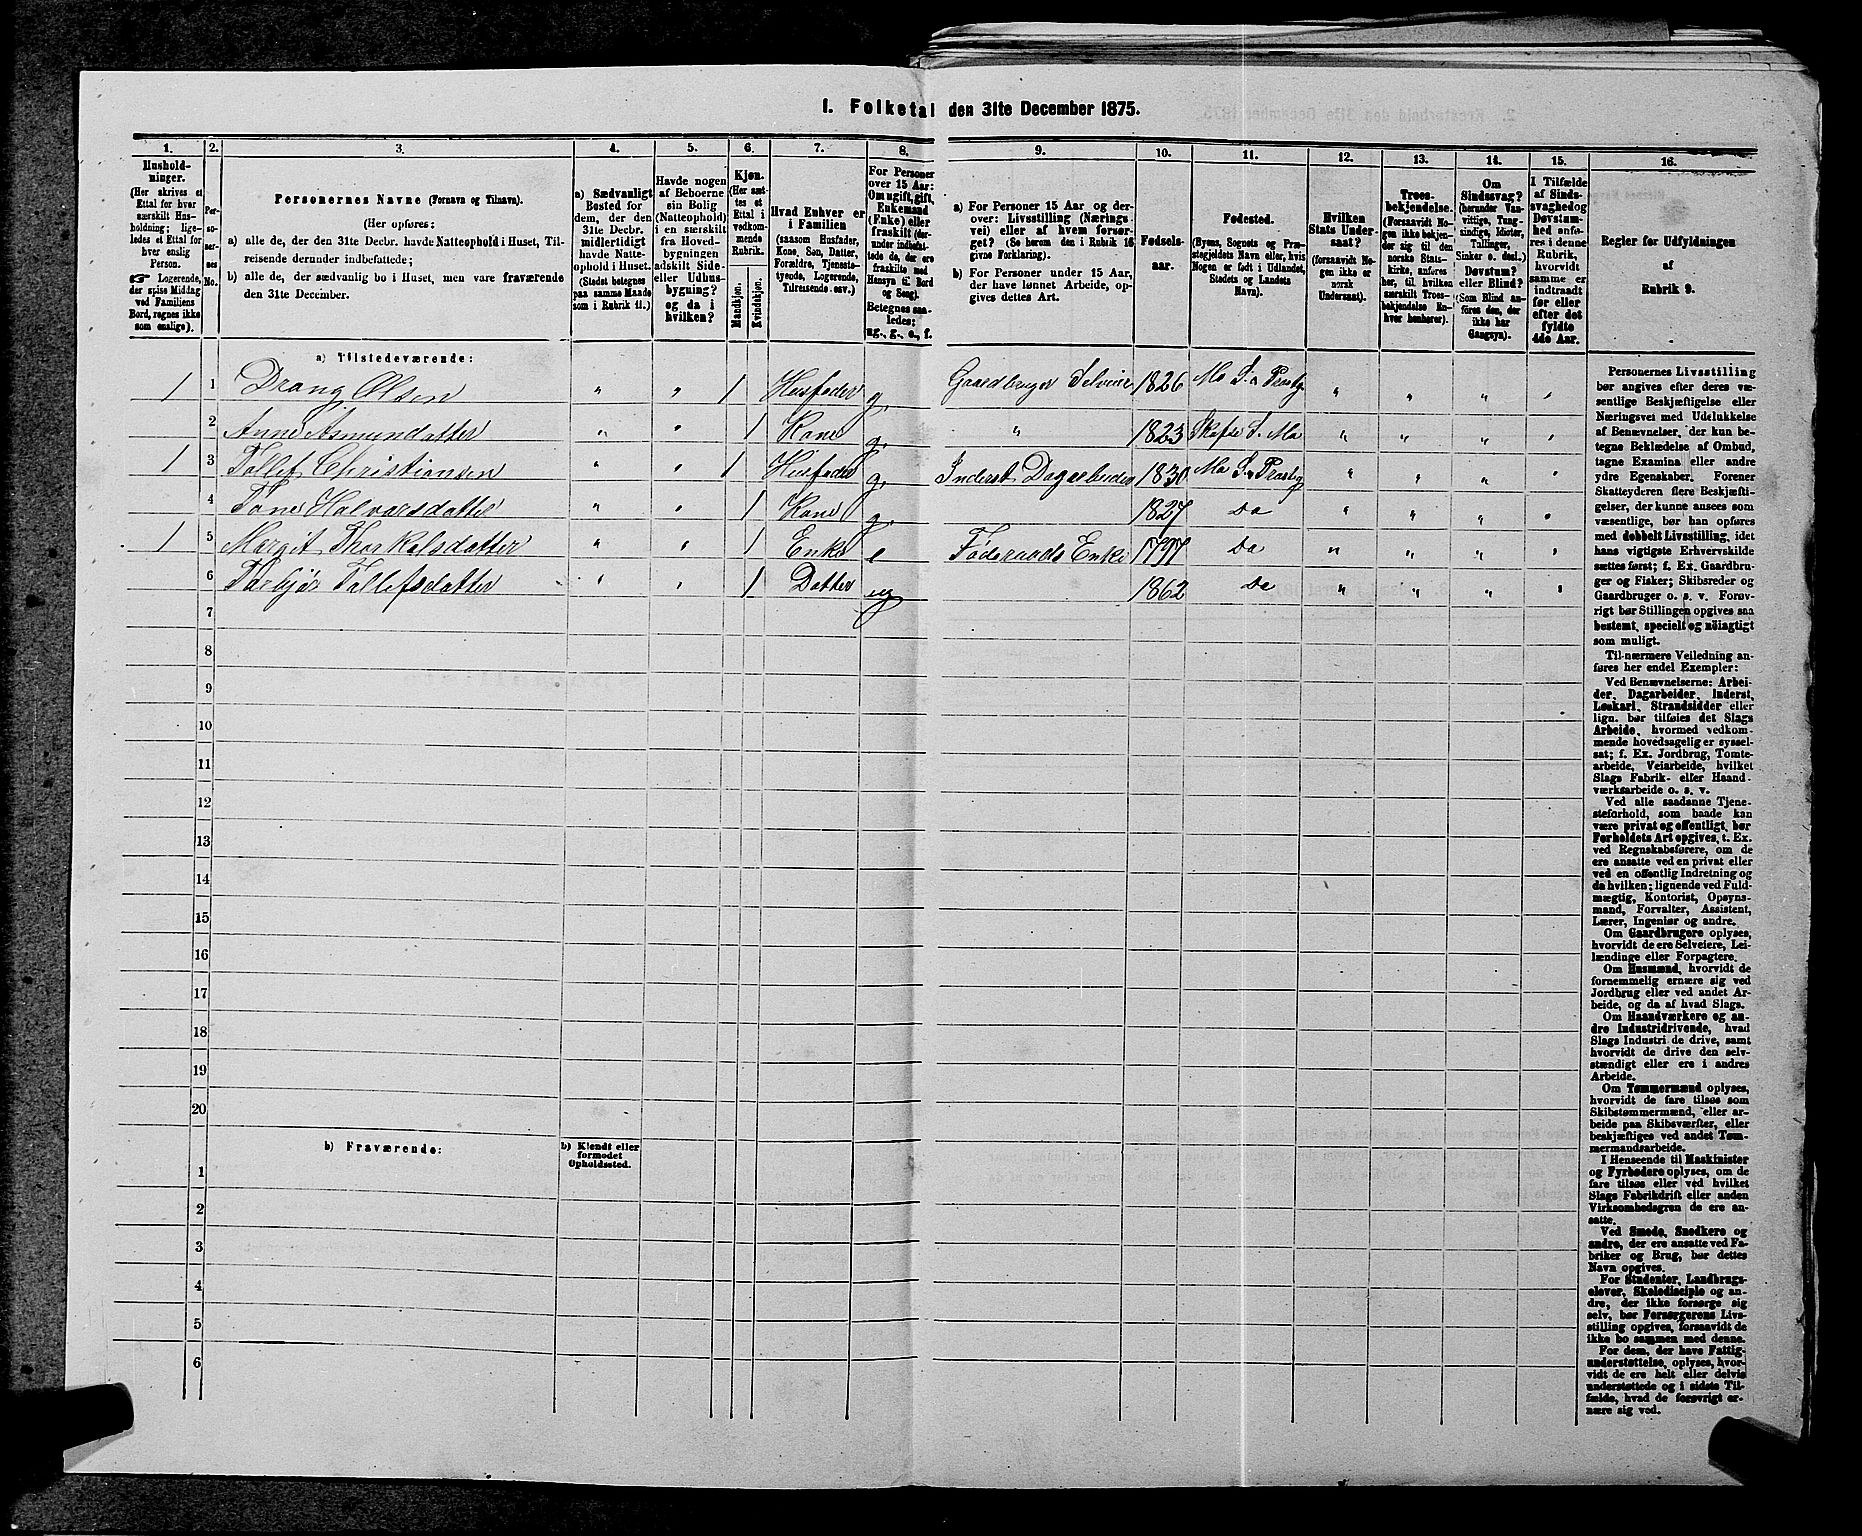 1. Folketal den 31te December 1875.
1.
2.
3.
4.
5.
6.
7.
8.
9.
10.
11.
12.
13.
14.
15.
16.
Husholdninger.
(Her skrives et
Ettal for hver
særskilt Husholdning;
ligeledes et Ettal for
hver enslig
Person.
☞ Logerende,
der spise Middag
ved Familiens
Bord, regnes ikke
som enslige).
Personernes
No.
Personernes Navne (Fornavn og Tilnavn).
(Her opføres:
a) alle de, der den 31te Decbr. havde Natteophold i Huset, Tilreisende
derunder indbefattede;
b) alle de, der sædvanlig bo i Huset, men vare fraværende
den 31te December.
a) Sædvanligt
Bosted for
dem, der den
31te Decbr.
midlertidigt
havde Natteophold
i Huset.
(Stedet betegnes
paa samme Maade
som i Rubrik 11.)
Havde nogen
af Beboerne
sin Bolig
(Natteophold)
i en særskilt
fra Hovedbygningen
adskilt Side-
eller Udhusbygning?
og da i
hvilken?
Kjøn.
(Her sættes
et
Ettal i
vedkommende
Rubrik.
Mandkjøn.
Kvindekjøn.
Hvad Enhver er
i Familien
(saasom Husfader,
Kone, Søn, Datter,
Forældre, Tjenestetyende,
Logerende,
Tilreisende osv.)
For Personer
over 15 Aar:
Om ugift, gift,
Enkemand
(Enke) eller
fraskilt (derunder
indbefattede
de, der ere
fraskilte med
Hensyn til Bord
og Seng).
Betegnes saaledes:
ug., g., e., f.
a) For Personer 15 Aar og derover:
Livsstilling (Næringsvei)
eller af hvem forsørget?
(Se herom den i Rubrik 16
givne Forklaring).
b) For Personer under 15 Aar,
der have lønnet Arbeide, opgives
dettes Art.
Fødselsaar.
Fødested.
(Byens, Sognets og Præstegjeldets
Navn eller, hvis
Nogen er født i Udlandet,
Stedets og Landets
Navn).
Hvilken
Stats Undersaat?
(forsaavidt Nogen
ikke er
norsk
Undersaat).
Troesbekjendelse.
(Forsaavidt Nogen
ikke bekjender
sig til den
norske Statskirke,
anføres
her, til hvilken
særskilt Troesbekjendelse
Enhver
henhører).
Om
Sindssvag?
(herunder Vanvittige,
Tungsindige,
Idioter,
Tullinger,
Sinker o. desl.)
Døvstum?
eller Blind?
(Som Blind anføres
den, der
ikke har
Gangsyn).
I Tilfælde
af Sindssvaghed
og
Døvstumhed
anføres
i denne
Rubrik,
hvorvidt
samme er
indtraadt
før eller
efter det
fyldte
4de Aar.
Regler for Udfyldningen
af
Rubrik 9.
a) Tilstedeværende:
1 1 Drang Olsen " " 1 Husfader g. Gaardbruger Selveier 1826 Mo S. & Præstg " " " "
2 Anne Asmundsdatter " " 1 Kone g. " 1823 Skafse S. Mo " " " "
1 3 Tallef Christiansen " " 1 Husfader g. Inderst Dagarbeider 1830 Mo S. & Præstg " " " "
4 Tone Halvorsdatter " " 1 Kone g. 1827 Do " " " "
1 5 Margit Thorkelsdatter " " 1 Enke e Føderaads Enke 1797 Do " " " "
6 Torbjør Tallefsdatter " " 1 Datter ug 1862 Do " " " "
7
8
9
10
11
12
13
14
15
16
17
18
19
20
b) Fraværende:
b) Kjendt eller
formodet
Opholdssted.
1
2
3
4
5
6
Personernes Livsstilling
bør angives efter deres væsentlige
Beskjæftigelse eller
Næringsvei med Udelukkelse
af Benævnelser, der kun betegne
Beklædelse af Ombud,
tagne Examina eller andre
ydre Egenskaber. Forener
Skatteyderen flere Beskjæftigelser,
der kunne ansees som
væsentlige, bør han opføres
med dobbelt Livsstilling, idet
hans vigtigste Erhvervskilde
sættes først; f. Ex. Gaardbruger
og Fisker; Skibsreder og
Gaardbruger o. s. v. Forøvrigt
bør Stillingen opgives saa
bestemt, specielt og nøiagtigt
som muligt.
Til nærmere Veiledning anføres
her endel Exempler:
Ved Benævnelserne: Arbeider,
Dagarbeider, Inderst,
Løskarl, Strandsidder eller
lign. bør tilføies det Slags
Arbeide, hvormed vedkommende
hovedsagelig er sysselsat;
f. Ex. Jordbrug, Tomtearbeide,
Veiarbeide, hvilket
Slags Fabrik- eller Haandværksarbeide
o. s. v.
Ved alle saadanne Tjenesteforhold,
som baade kan
være privat og offentligt, bør
Forholdets Art opgives, t. Ex.
ved Regnskabsførere, om de
ere ansatte ved en privat eller
ved en offentlig Indretning og
da hvilken; lignende ved Fuldmægtig,
Kontorist, Opsynsmand,
Forvalter, Assistent,
Lærer, Ingeniør og andre.
Om Gaardbrugere oplyses,
hvorvidt de ere Selveiere, Leilændinge
eller Forpagtere.
Om Husmænd, hvorvidt de
fornemmelig ernære sig ved
Jordbrug eller ved andet Arbeide,
og da af hvad Slags.
Om Haandværkere og andre
Industridrivende, hvad
Slags Industri de drive, samt
hvorvidt de drive den selvstændigt
eller ere i andres
Arbeide.
Om Tømmermænd oplyses,
hvorvidt de fare tilsøs som
Skibstømmermænd, eller arbeide
paa Skibsværfter, eller
beskjæftiges ved andet Tømmermandsarbeide.
I Henseende til Maskinister
og Fyrbødere oplyses, om de
fare tilsøs eller ved hvilket
Slags Fabrikdrift eller anden
Virksomhedsgren de ere ansatte.
Ved Smede, Snedkere og
andre, der ere ansatte ved Fabriker
og Brug, bør dettes
Navn opgives.
For Studenter, Landbrugselever,
Skoledisciple og andre,
der ikke forsørge sig
selv, bør Forsørgerens Livsstilling
opgives, forsaavidt de
ikke bo sammen med denne.
For dem, der have Fattigunderstøttelse,
oplyses, hvorvidt
de ere helt eller delvis
understøttede og i sidste Tilfælde,
hvad de forøvrigt ernære
sig ved.